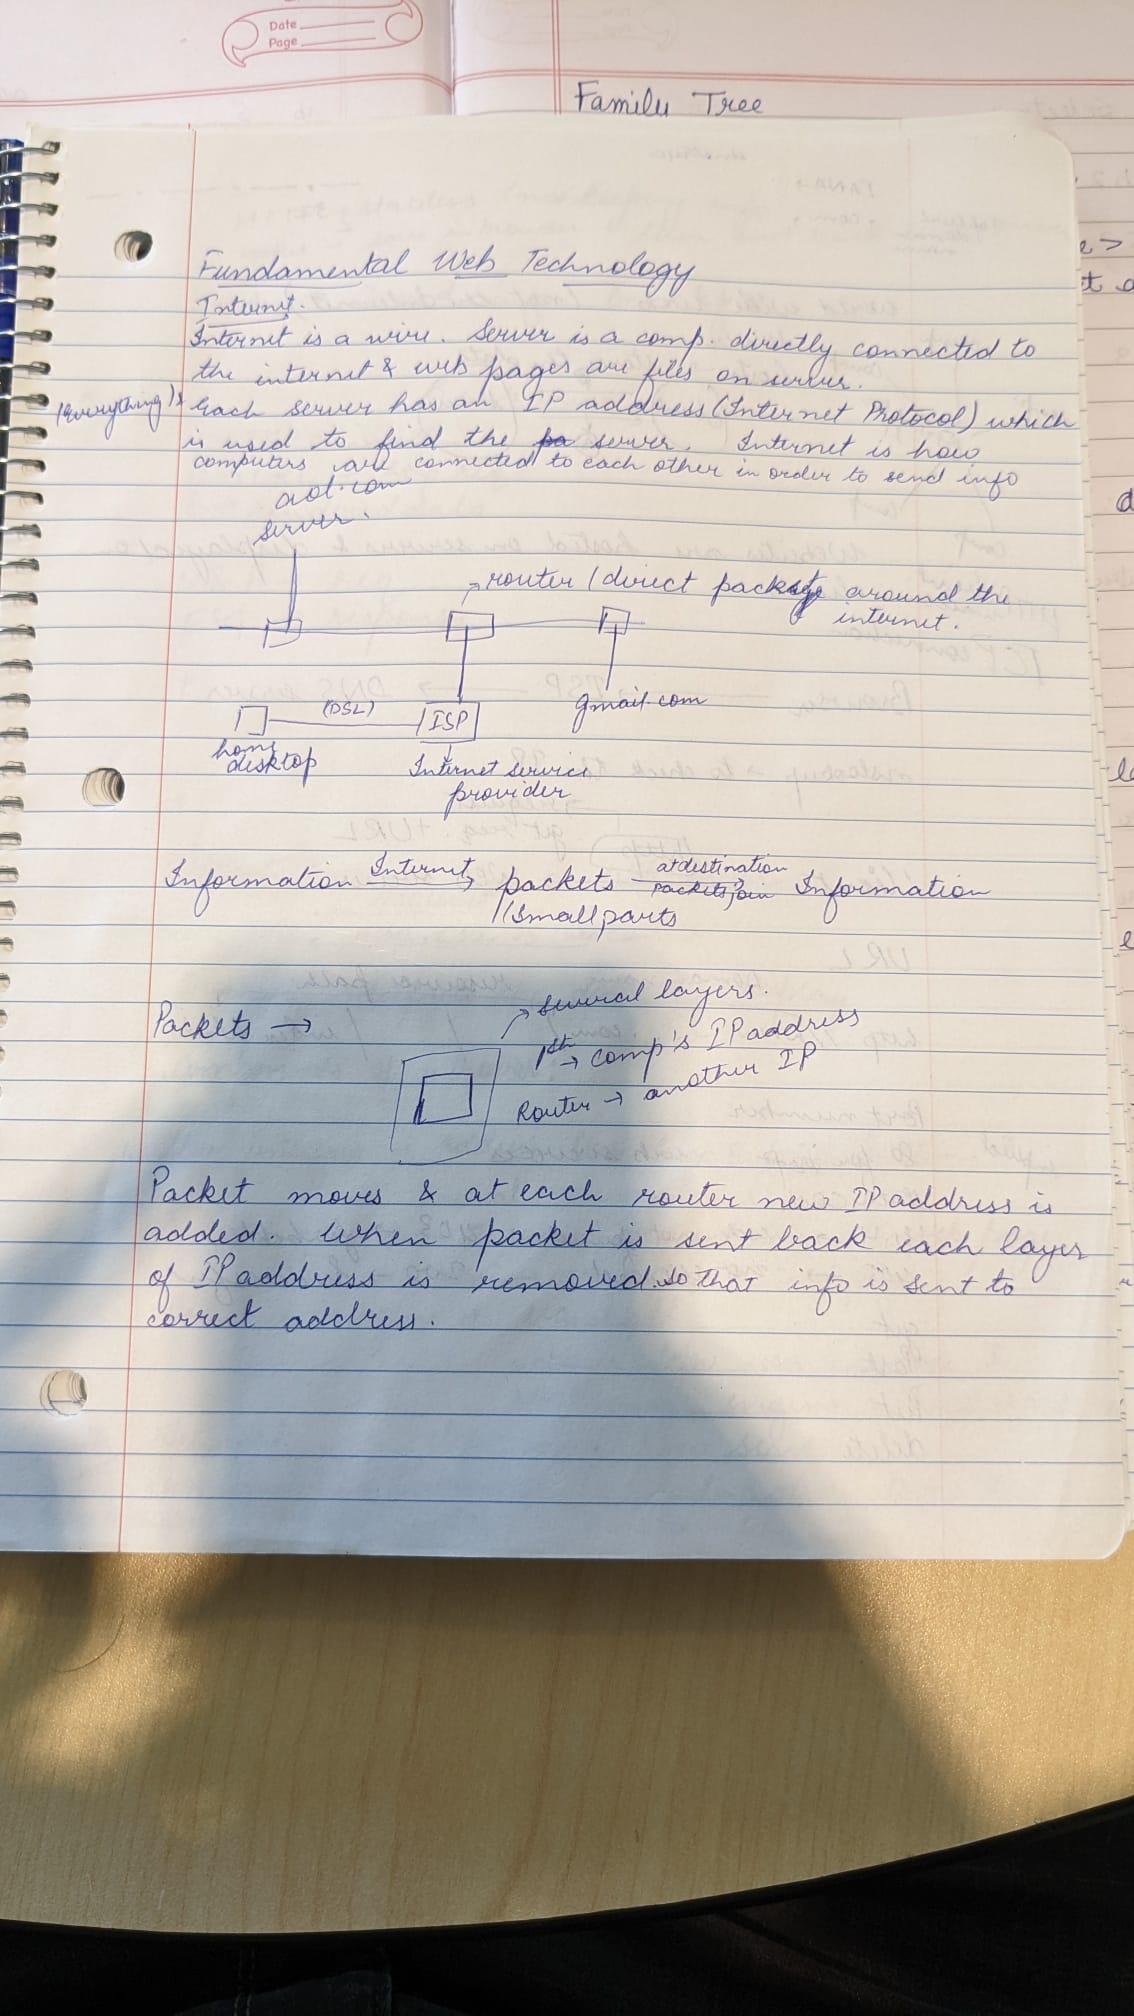 Date
Page
Family Tree
Fundamental Web Technology
Internet.
Internet is a wire. Server is a comp. directly connected to
the internet & web pages are files on server.
(everything)
Each server has an IP address (Internet Protocol) which
is used to find the server. Internet is how
computers are connected to each other in order to send info
aol.com
server.
router / direct package around the
internet.
(DSL)
ISP
gmail.com
home
desktop
Internet service
provider
Information Internet packets at destination packets join Information
// Small parts
Packets →
several layers.
1st → comp's IP address
Router → another IP
Packet moves & at each router new IP address is
added. When packet is sent back each layer
of IP address is removed so that info is sent to
correct address.